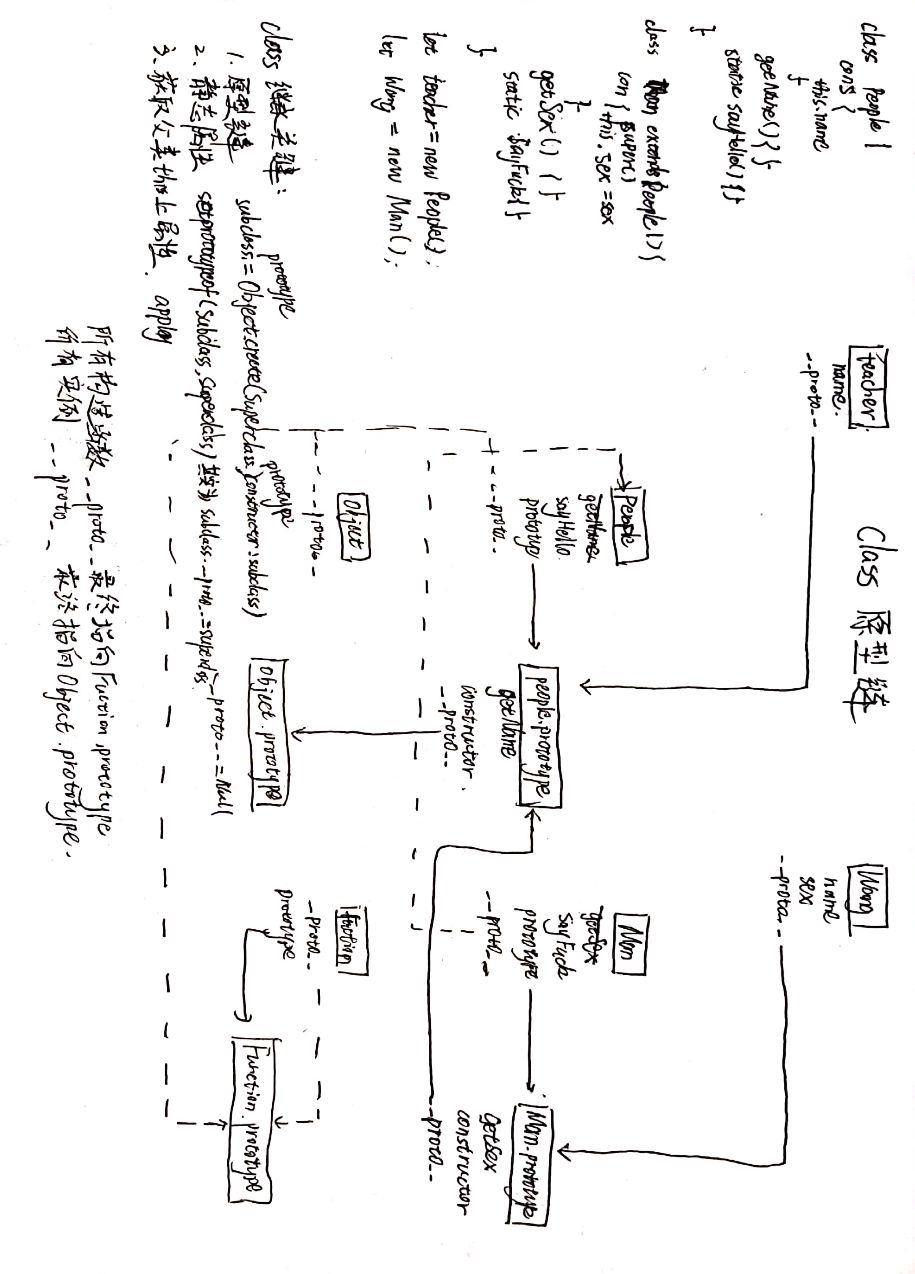 Class 原型链
class People {
cons {
this.name
}
getName() { }
static sayHello() { }
}
class Man extends People() {
con { super()
this.sex = sex
}
getSex() { }
static SayFuck{ }
}
let teacher = new People();
let Wang = new Man();
teacher
name
--proto--
Wang
name
sex
--proto--
People
getName
sayHello
prototyp
--proto--
people.prototype
getName
constructor
--proto--
Man
getSex
SayFuck
prototype
--proto--
Man.prototype
getSex
constructor
--proto--
Object
--proto--
object.prototype
--proto-- = Null
Fuction
--proto--
prototype
Function.prototype
class 继承关键:
1. 原型链 subclass.prototype = Object.create(Superclass.prototype, constructor: subclass)
2. 静态属性 setprototypeof(subclass, superclass) 其实为 subclass.--proto-- = superclass
3. 获取父类this上属性. apploy
所有构造函数 --proto-- 最终指向Fuction.prototype
所有实例 --proto-- 最终指向Object.prototype.